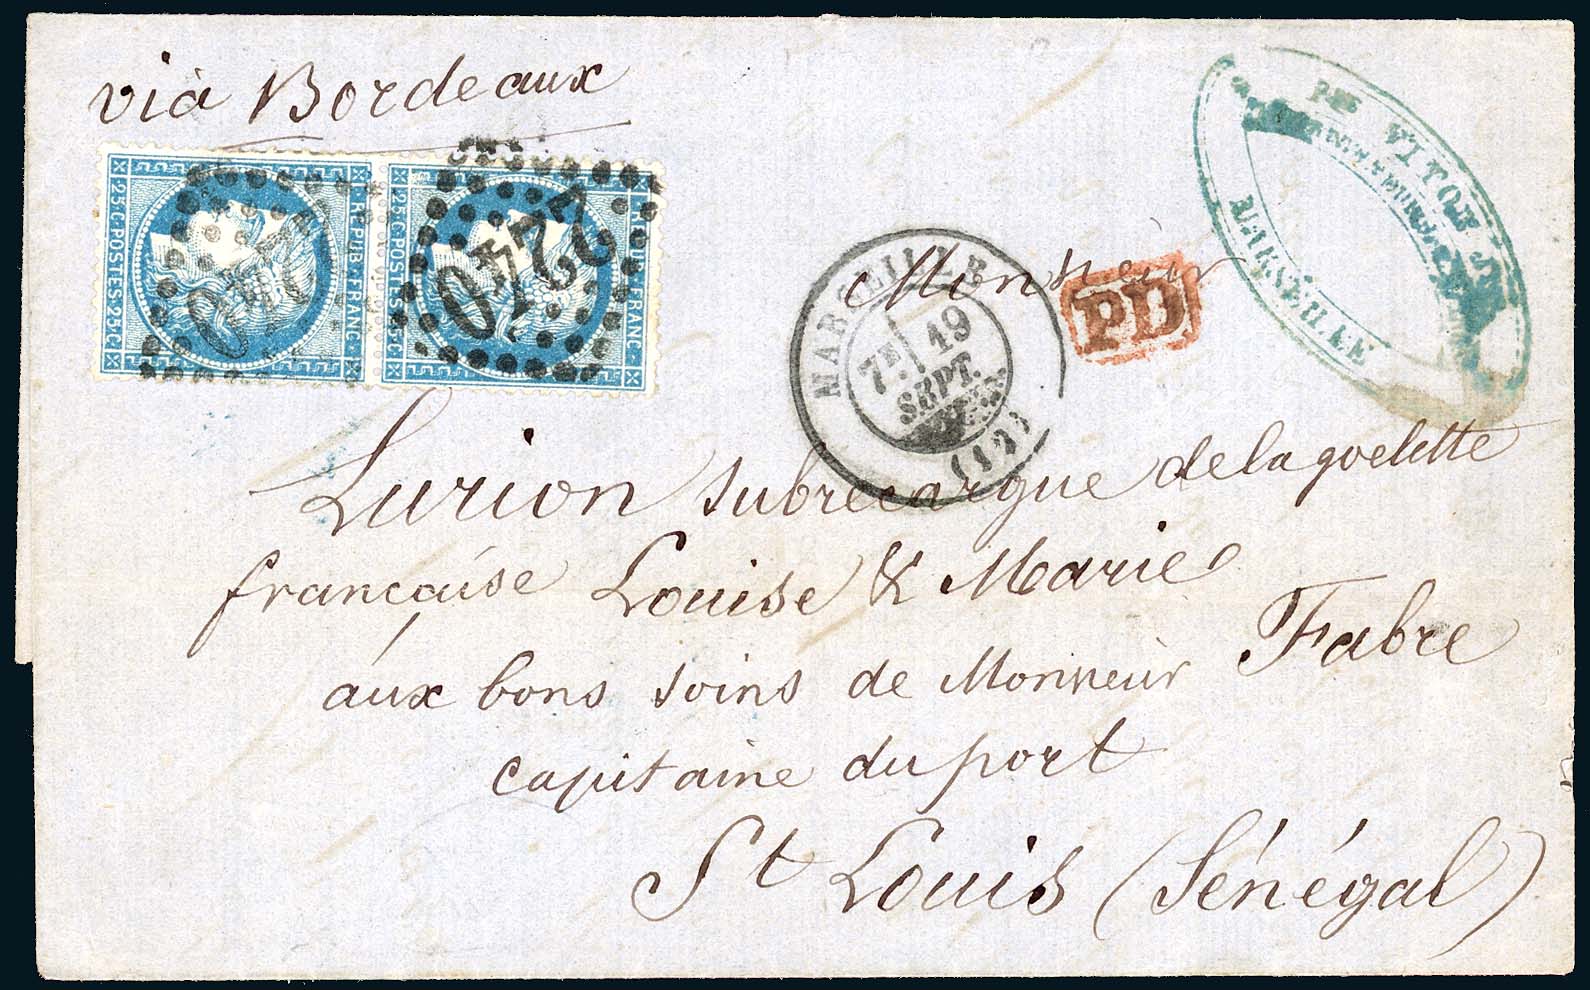 vià Bordeaux
25·C·POSTES·25·C
REPUB·FRANC
2240
25·C·POSTES·25·C
REPUB·FRANC
2240
MARSEILLE
7E
19
SEPT.
(12)
PD
VITON
MARSEILLE
Monsieur
Lurion subrécargue de la goelette
française Louise & Marie
aux bons soins de Monsieur Fabre
capitaine du port
St Louis (Sénégal)